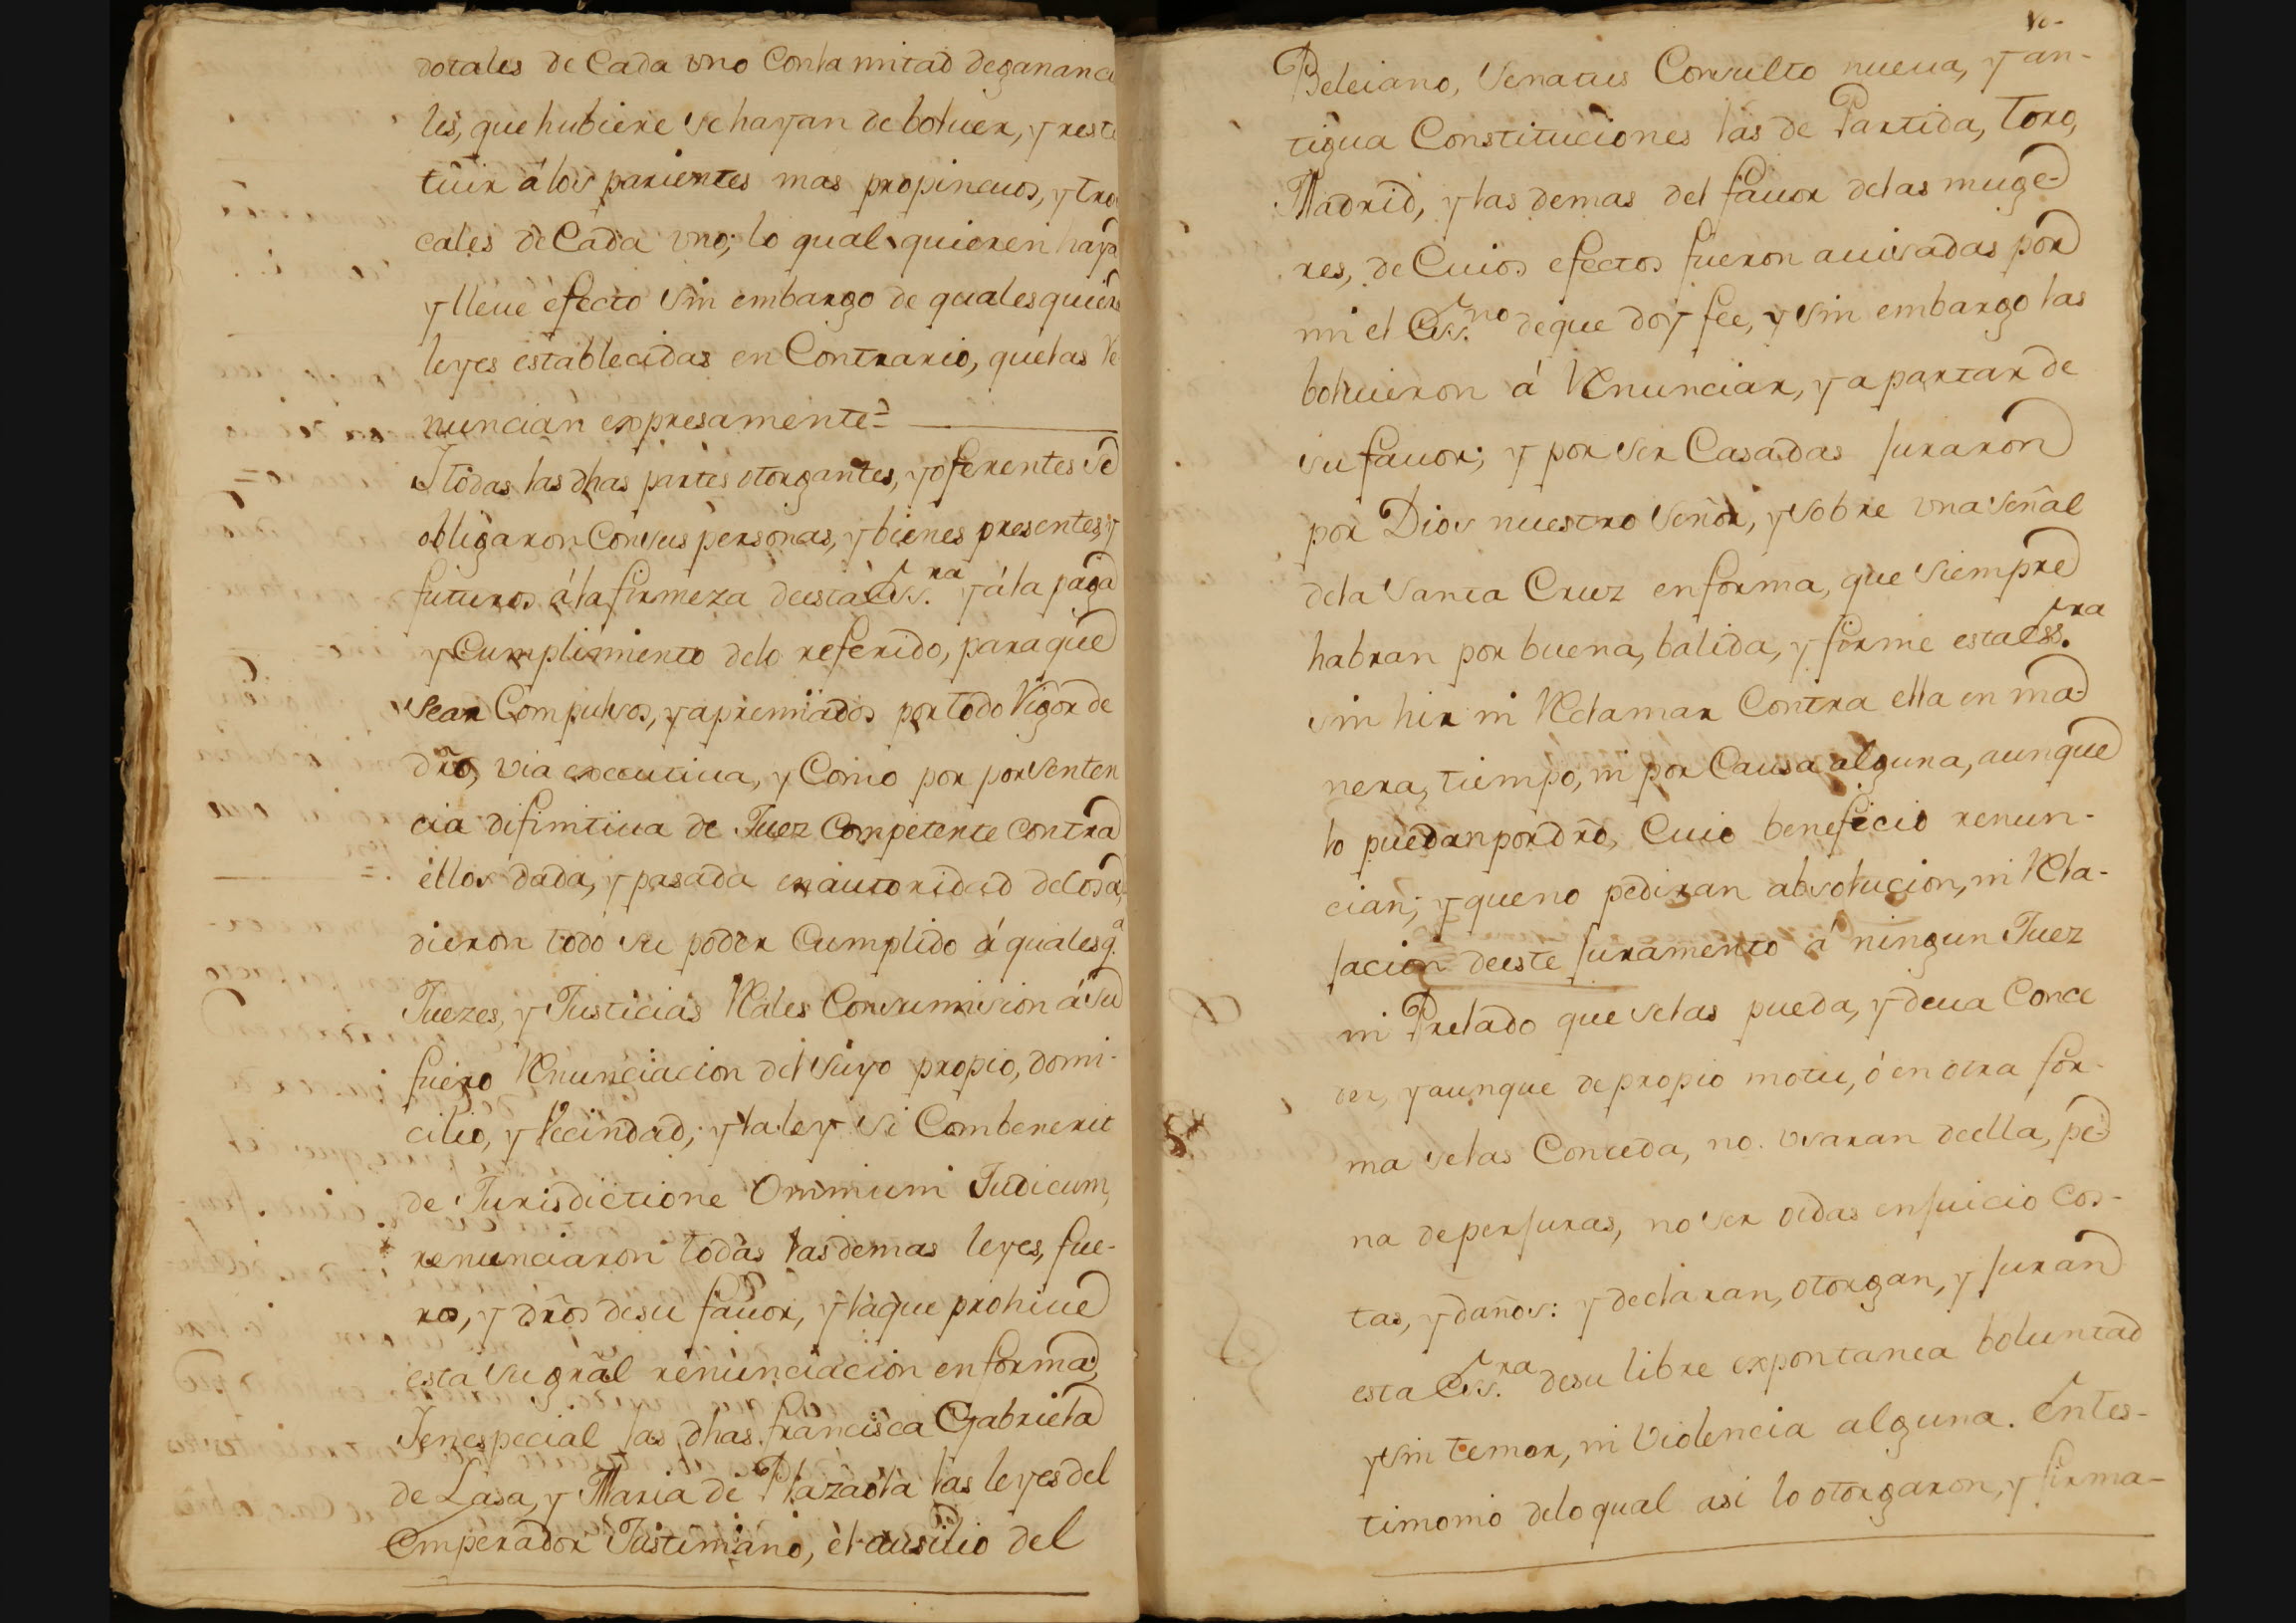 dotales de Cada vno Conla mitad de gananci
les, que hubiere se hayan de boluer, y resti
tuir á los parientes mas propincuos, y tron
cales de Cada vno; lo qual quieren haya
y lleue efecto sin embargo de qualesquiera
leyes establecidas en Contrario, que las Re
nuncian expresamente=
I todas las dhas partes otorgantes, y oferentes se
obligaron Con sus personas, y bienes presentes, y
futuros á la firmeza de esta Ess.ra y á la paga
y Cumplimiento delo referido, para que
sean Compulsos, y apremiados por todo Rigor de
dro, via executiua, y Como por por senten
cia difinitiua de Juez Competente contra
ellos dada, y pasada en autoridad de cosa,
dieron todo su poder Cumplido á qualesq.a
Juezes, y Justicias Rales Con sumision á su
fuero Renunciacion del suyo propio, domi-
cilio, y Vecindad; y la ley Si Combenerit
de Jurisdictione Omnium Judicum,
renunciaron todas las demas leyes, fue-
ros, y dros de su fauor, y la que prohiue
esta su gral renunciacion en forma;
I en especial las dhas francisca Gabriela
de Lasa, y Maria de Plazaola las leyes del
Emperador Justiniano, el ausilio del
Beleiano, Senatus Consulto nueua, y an-
tigua Constituciones las de Partida, Toro,
Madrid, y las demas del fauor delas muge-
res, de Cuios efectos fueron auisadas por
mi el Ess.no de que doy fee, y sin embargo las
boluieron á Renunciar, y apartar de
su fauor; y por ser Casadas Juraron
por Dios nuestro Señor, y sobre vna señal
dela Santa Cruz en forma, que siempre
habran por buena, balida, y firme esta Ess.ra
sin hir ni Reclamar Contra ella en ma-
nera, tiempo, ni por Causa alguna, aunque
lo puedan por dro, Cuio beneficio renun-
cian; y que no pediran absolucion, ni Rela-
jacion de este Juramento á ningun Juez
ni Prelado que se las pueda, y deua Conce
der, y aunque de propio motu, ó en otra for-
ma se las Conceda, no vsaran de ella, pe-
na de perjuras, no ser oidas en juicio Cos-
tas, y daños: y declaran, otorgan, y Juran
esta Ess.ra de su libre expontanea boluntad
y sin temor, ni violencia alguna. En tes-
timonio delo qual asi lo otorgaron, y firma-